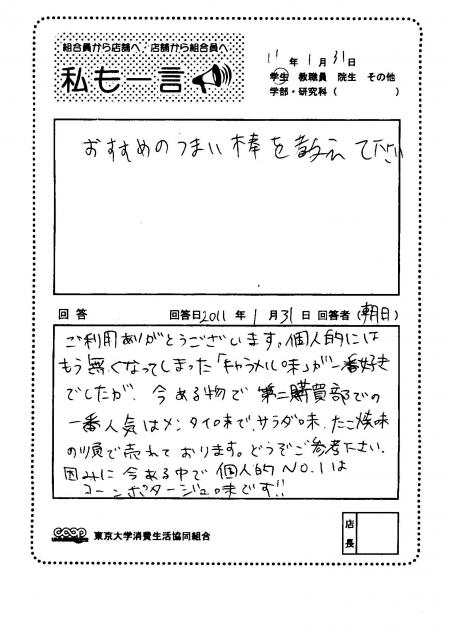 組合員から店舗へ 店舗から組合員へ
私も一言
11年1月31日
学生 教職員 院生 その他
学部・研究科( )
おすすめのうまい棒を教えて下さい
回答 回答日2011年1月31日 回答者(朝日)
ご利用ありがとうございます。個人的には
もう無くなってしまった「キャラメル味」が一番好き
でしたが、今ある物で第二購買部での
一番人気はメンタイ味で、サラダ味、たこ焼味
の順で売れております。どうぞご参考下さい.
因みに今ある中で個人的NO.1は
コーンポタージュ味です!!
coop 東京大学消費生活協同組合
店長